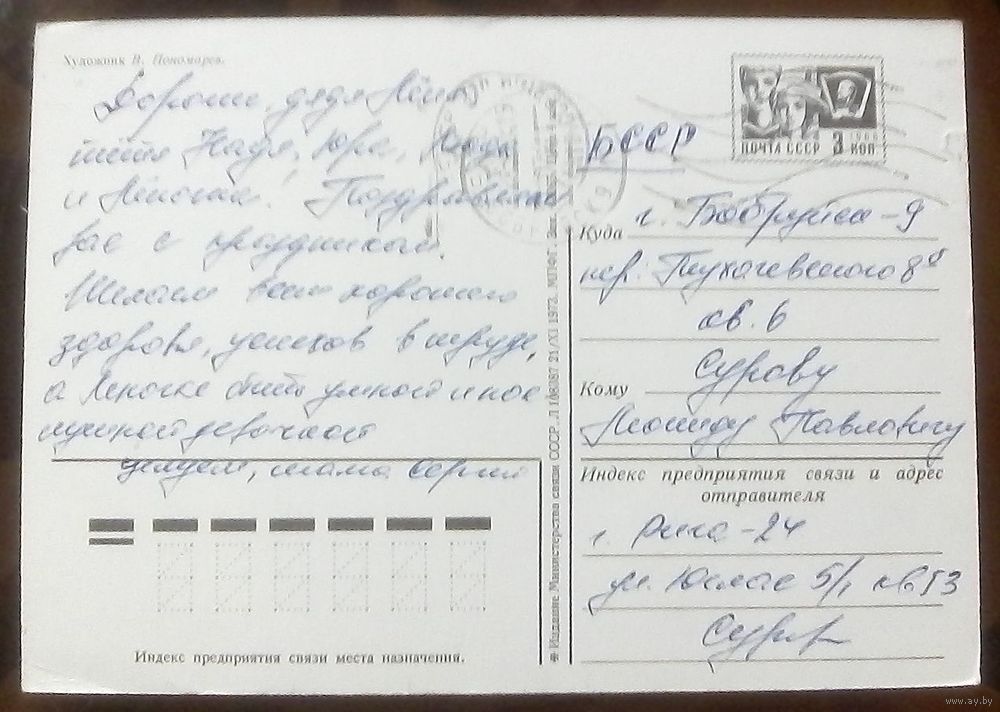 Художник В. Пономарев.
Дорогие дядя Лёня,
тётя Надя, Юра, Люда
и Леночка! Поздравляем
вас с праздником.
Желаем всем хорошего
здоровья, успехов в труде,
а Леночке быть умной и пос
лушной девочкой
целуем, мама Сергей
БССР
ПОЧТА СССР 3 КОП
1966
Куда г. Бобруйск-9
пер. Тухачевского 8
кв. 6
Сурову
Кому
Леониду Павловичу
Индекс предприятия связи и адрес
отправителя
г. Рига-24
ул. 5/1 кв 53
Суров
Издание Министерства связи СССР. 21/XI 1973. МПФГ. Зак. Цена 4 коп.
Индекс предприятия связи места назначения.
www.ay.by